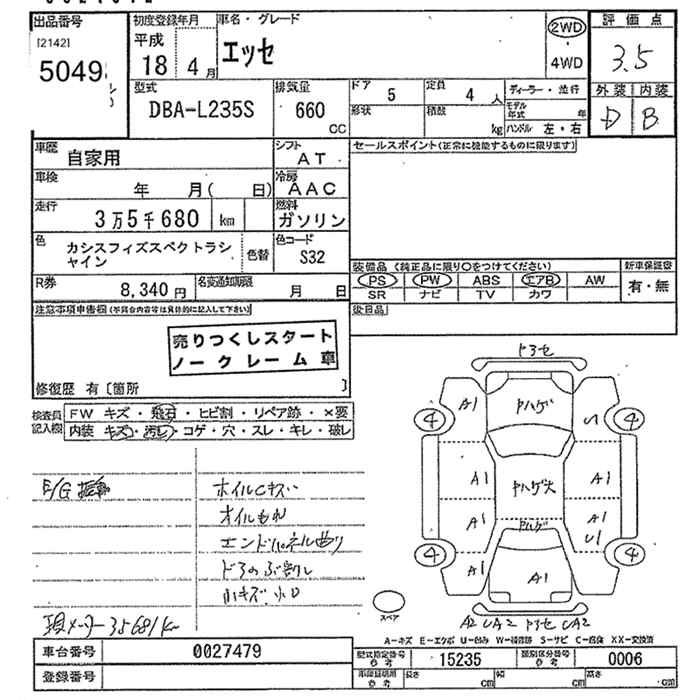 出品番号
[2142]
5049
初度登録年月
平成
18 4 月
車名・グレード
エッセ
2WD
4WD
評価点
3.5
外装 内装
D B
型式
DBA-L235S
排気量
660
CC
ドア
5
形状
定員
4 人
積載
kg
ディーラー・並行
モデル年式 年
ハンドル 左・右
車歴
自家用
シフト
AT
車検
年 月( 日)
冷房
AAC
走行
3万5千680 km
燃料
ガソリン
色
カシスフィズスペクトラシャイン
色替
色コード
S32
R券
8,340 円
名変通知期限
月 日
セールスポイント(正常に機能するものに限ります)
装備品(純正品に限り○をつけてください)
PS PW ABS エアB AW
SR ナビ TV カワ
新車保証書
有・無
後日品
注意事項申告欄(不具合内容等は具体的に記入して下さい)
売りつくしスタート
ノークレーム車
修復歴 有〔箇所 〕
検査員記入欄
FW キズ・飛石・ヒビ割・リペア跡・×要
内装 キズ・汚レ・コゲ・穴・スレ・キレ・破レ
E/G
ホイルCキズ
オイルもれ
エンドパネル曲り
ドアのぶ割れ
小キズ 凹
現メーター 35681km
ドアセ
A1
ヤハゲ
U1
4
4
A1
ヤハゲ大
A1
A1
ヤハゲ
A1
U1
4
4
A1
A1
スペア
A2 UA2 ドアセ UA2
A-キズ E-エクボ U-凹み W-補修跡 S-サビ C-腐蝕 XX-交換済
車台番号
0027479
登録番号
型式指定番号 参考
15235
類別区分番号 参考
0006
車庫証明用 参考
長さ cm
幅 cm
高さ cm